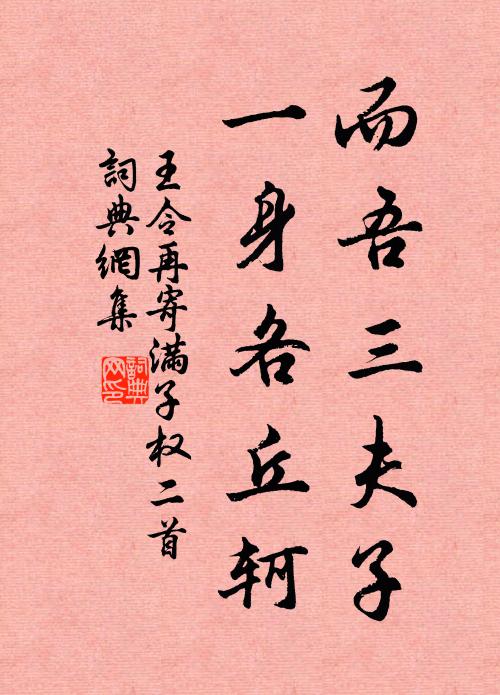 而吾三夫子
一身各丘轲
王令再寄滿子权二首
詞典網集
詞典網印